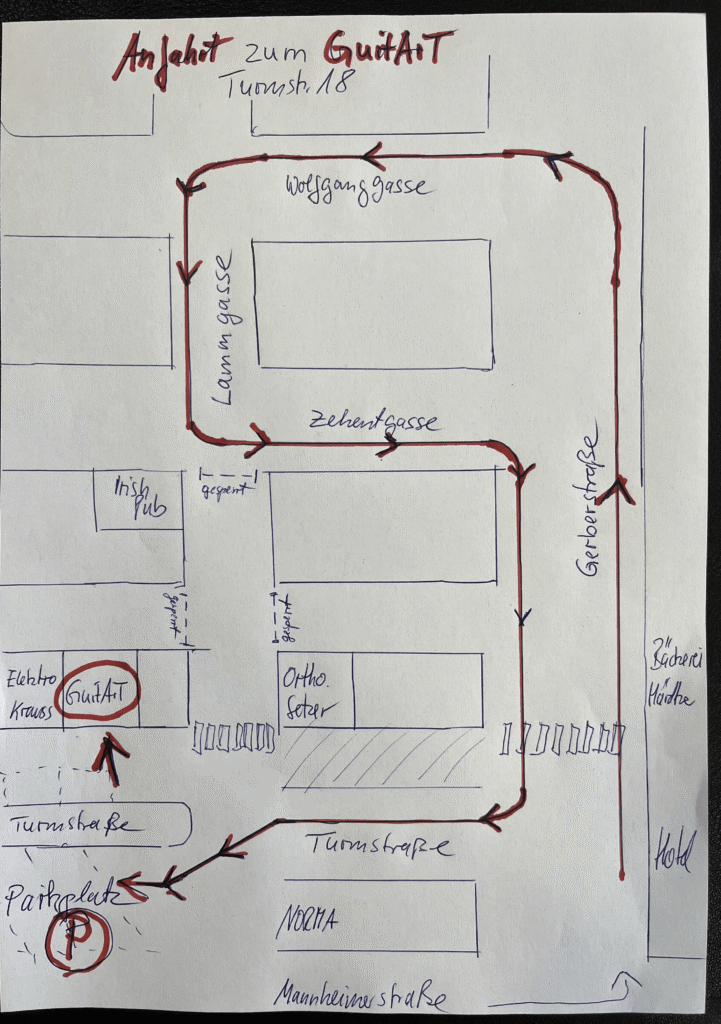 Anfahrt zum GuitArT
Turmstr. 18
Wolfganggasse
Lammgasse
Zehentgasse
gesperrt
Irish
Pub
Gerberstraße
gesperrt
gesperrt
Elektro
Krauss
GuitArT
Ortho.
Setzer
Bäckerei
Härdtle
Turmstraße
Turmstraße
Hotel
Parkplatz
P
NORMA
Mannheimerstraße